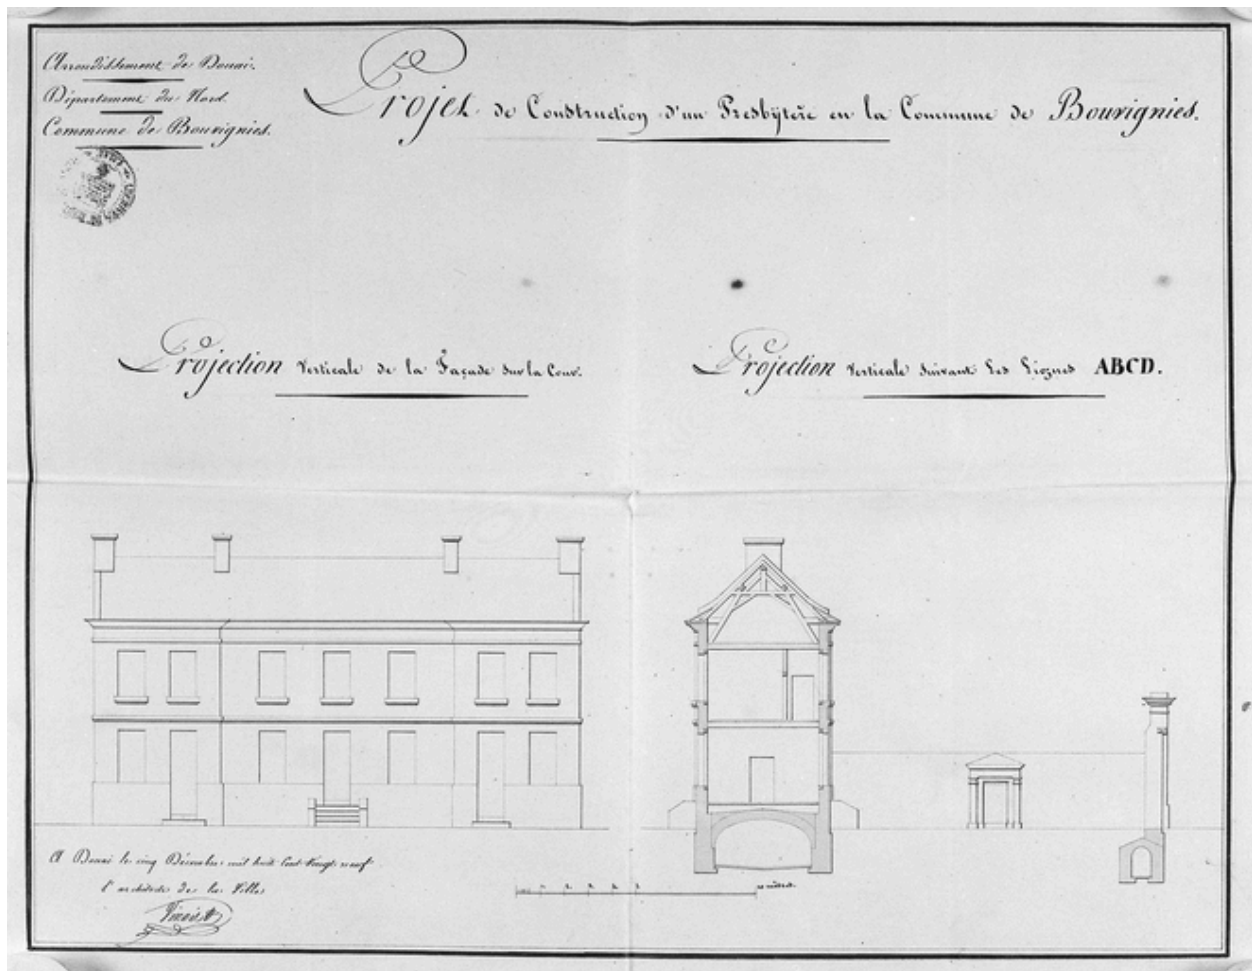 Arrondissement de Douai.
Département du Nord.
Commune de Bouvignies.
Projet de Construction d'un Presbÿtère en la Commune de Bouvignies.
Projection Verticale de la Façade Sur la Cour.
Projection Verticale Suivant Les Lignes ABCD.
A Douai le cinq Décembre mil huit Cent Vingt neuf
l'architecte de la Ville